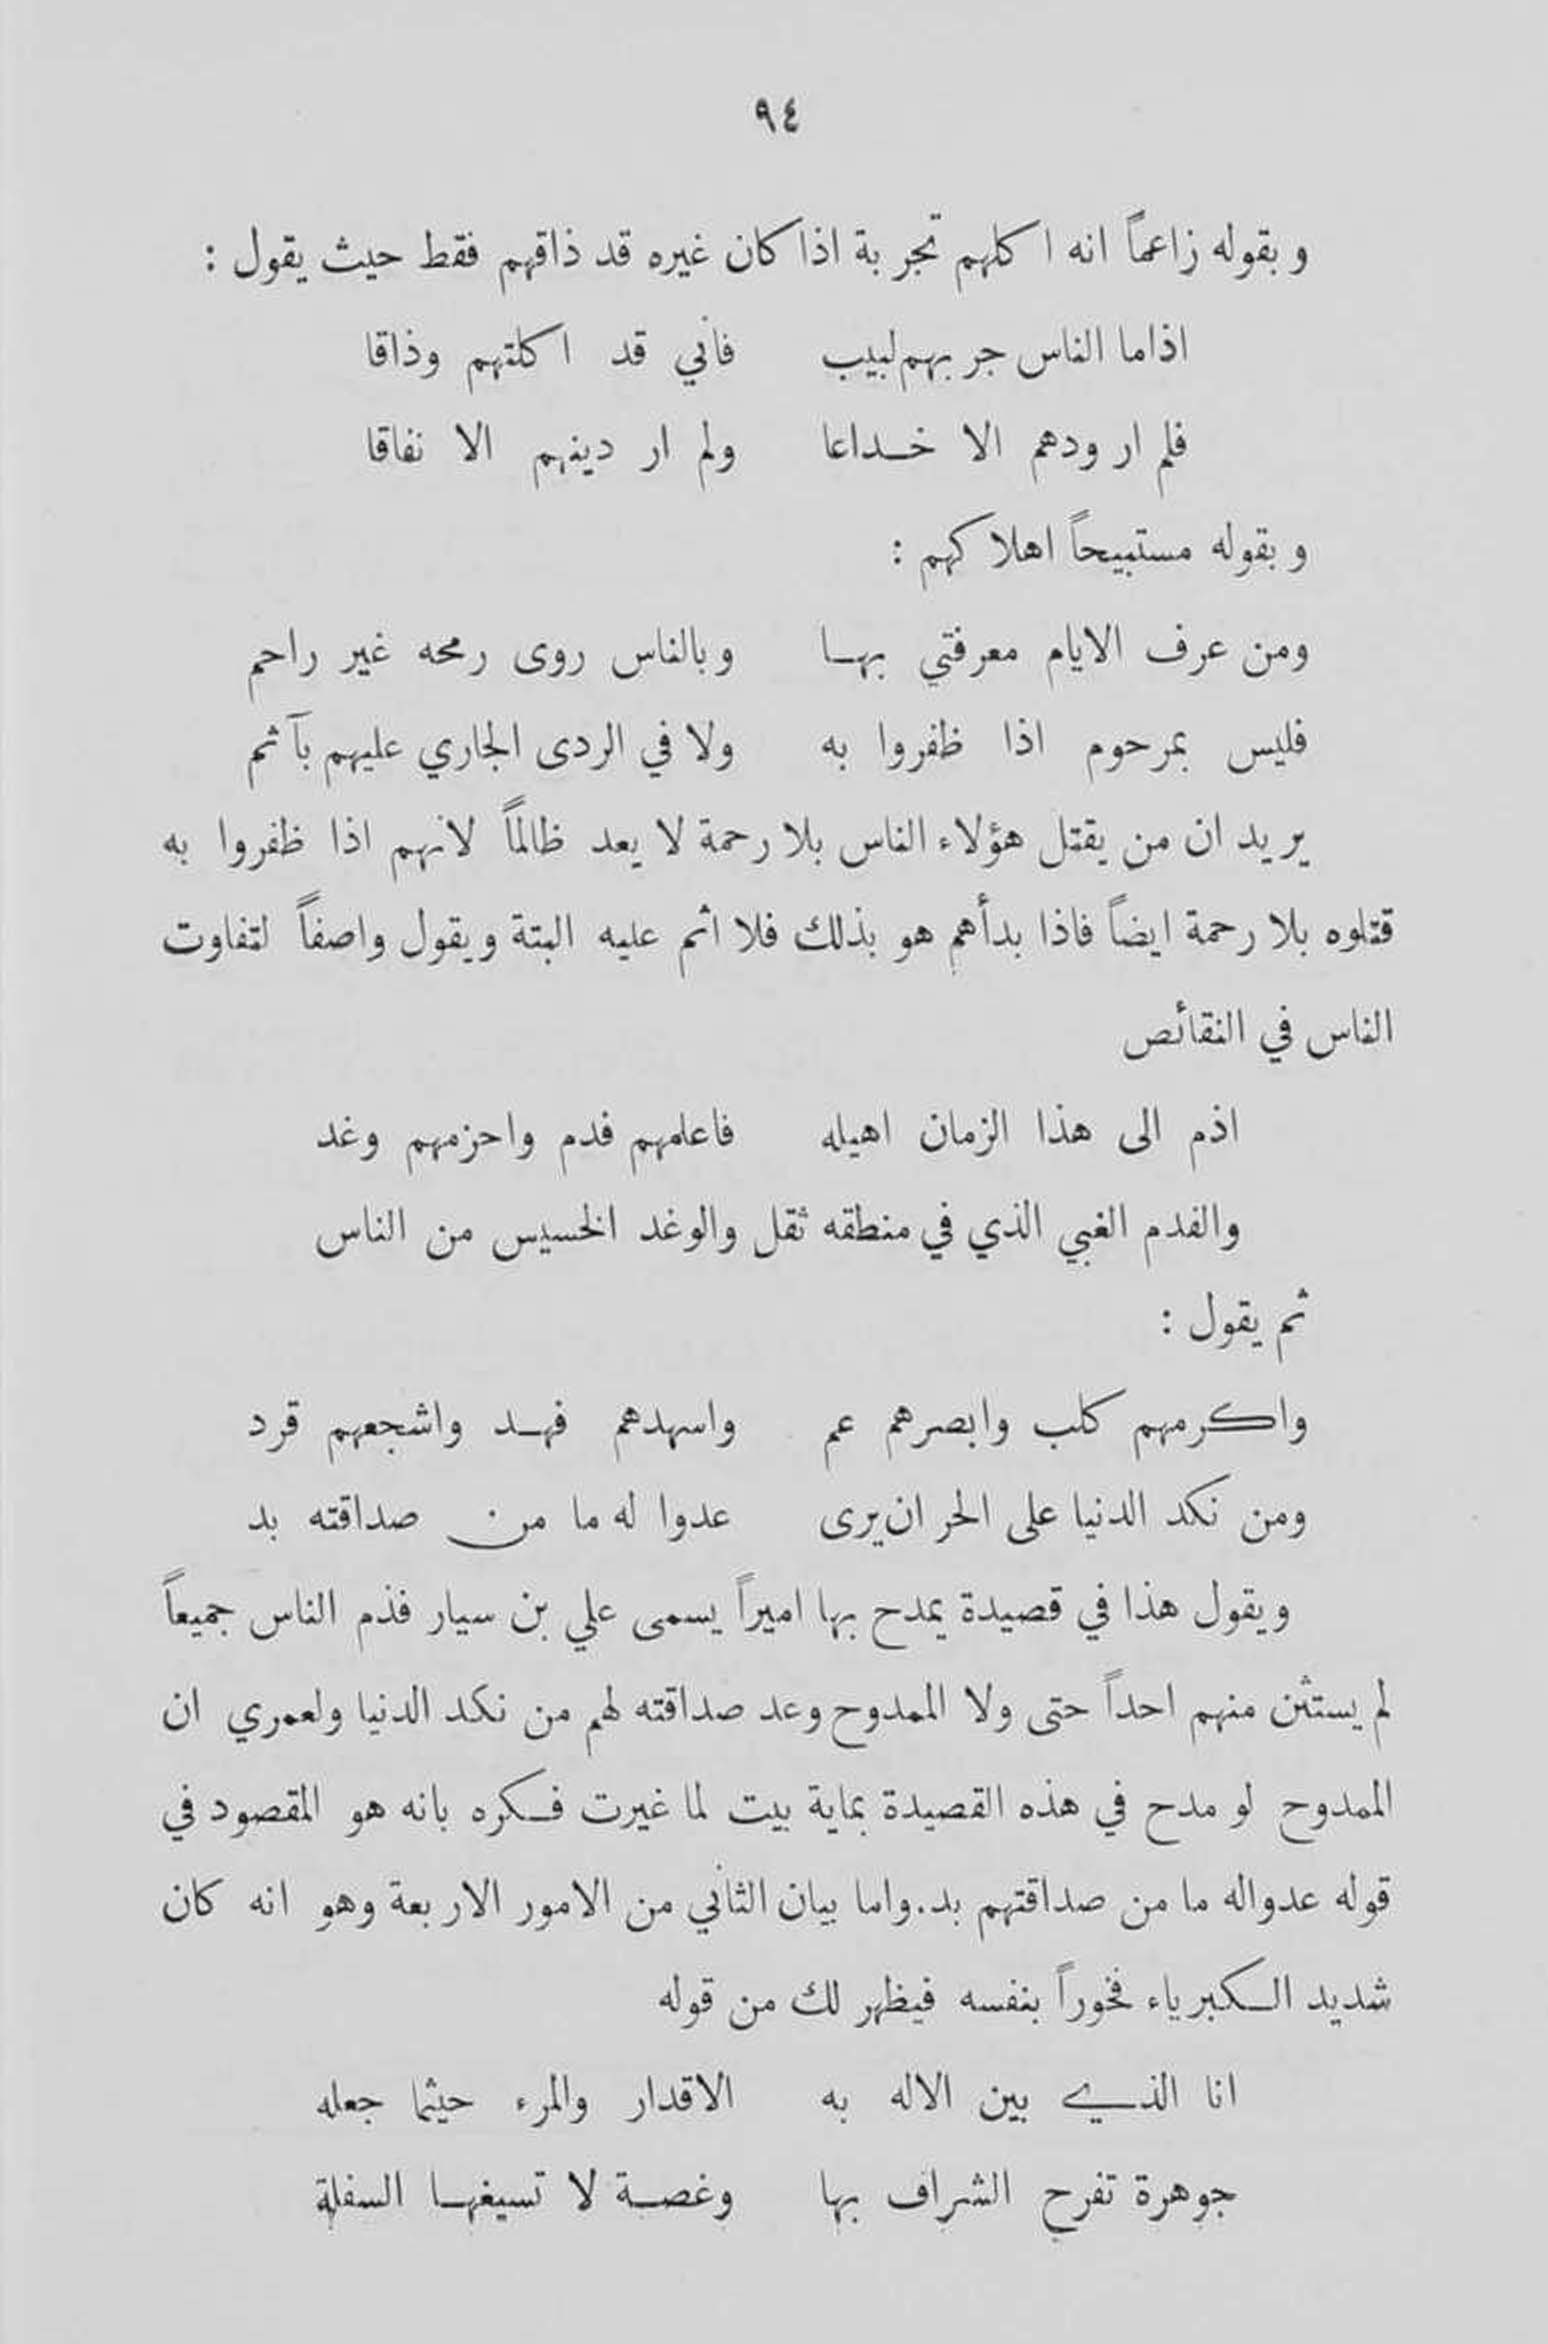 ٩٤
وبقوله زاعماً انه اكلهم تجربة اذا كان غيره قد ذاقهم فقط حيث يقول :
اذاما الناس جربهم لبيب فأني قد اكلتهم وذاقا
فلم ار ودهم الا خداعا ولم ار دينهم الا نفاقا
وبقوله مستبيحاً اهلاكهم :
ومن عرف الايام معرفتي بها وبالناس روى رمحه غير راحم
فليس بمرحوم اذا ظفروا به ولا في الردى الجاري عليهم بآثم
يريد ان من يقتل هؤلاء الناس بلا رحمة لا يعد ظالماً لانهم اذا ظفروا به
قتلوه بلا رحمة ايضاً فاذا بدأهم هو بذلك فلا اثم عليه البتة ويقول واصفاً لتفاوت
الناس في النقائص
اذم الى هذا الزمان اهيله فاعلمهم فدم واحزمهم وغد
والفدم الغبي الذي في منطقه ثقل والوغد الخسيس من الناس
ثم يقول :
واكرمهم كلب وابصرهم عم واسهدهم فهد واشجعهم قرد
ومن نكد الدنيا على الحر ان يرى عدوا له ما من صداقته بد
ويقول هذا في قصيدة يمدح بها اميراً يسمى علي بن سيار فذم الناس جميعاً
لم يستثن منهم احداً حتى ولا الممدوح وعد صداقته لهم من نكد الدنيا ولعمري ان
الممدوح لو مدح في هذه القصيدة بماية بيت لما غيرت فكره بانه هو المقصود في
قوله عدواله ما من صداقتهم بد. واما بيان الثاني من الامور الاربعة وهو انه كان
شديد الكبرياء فخوراً بنفسه فيظهر لك من قوله
انا الذي بين الاله به الاقدار والمرء حيثما جعله
جوهرة تفرح الشراف بها وغصة لا تسيغها السفلة